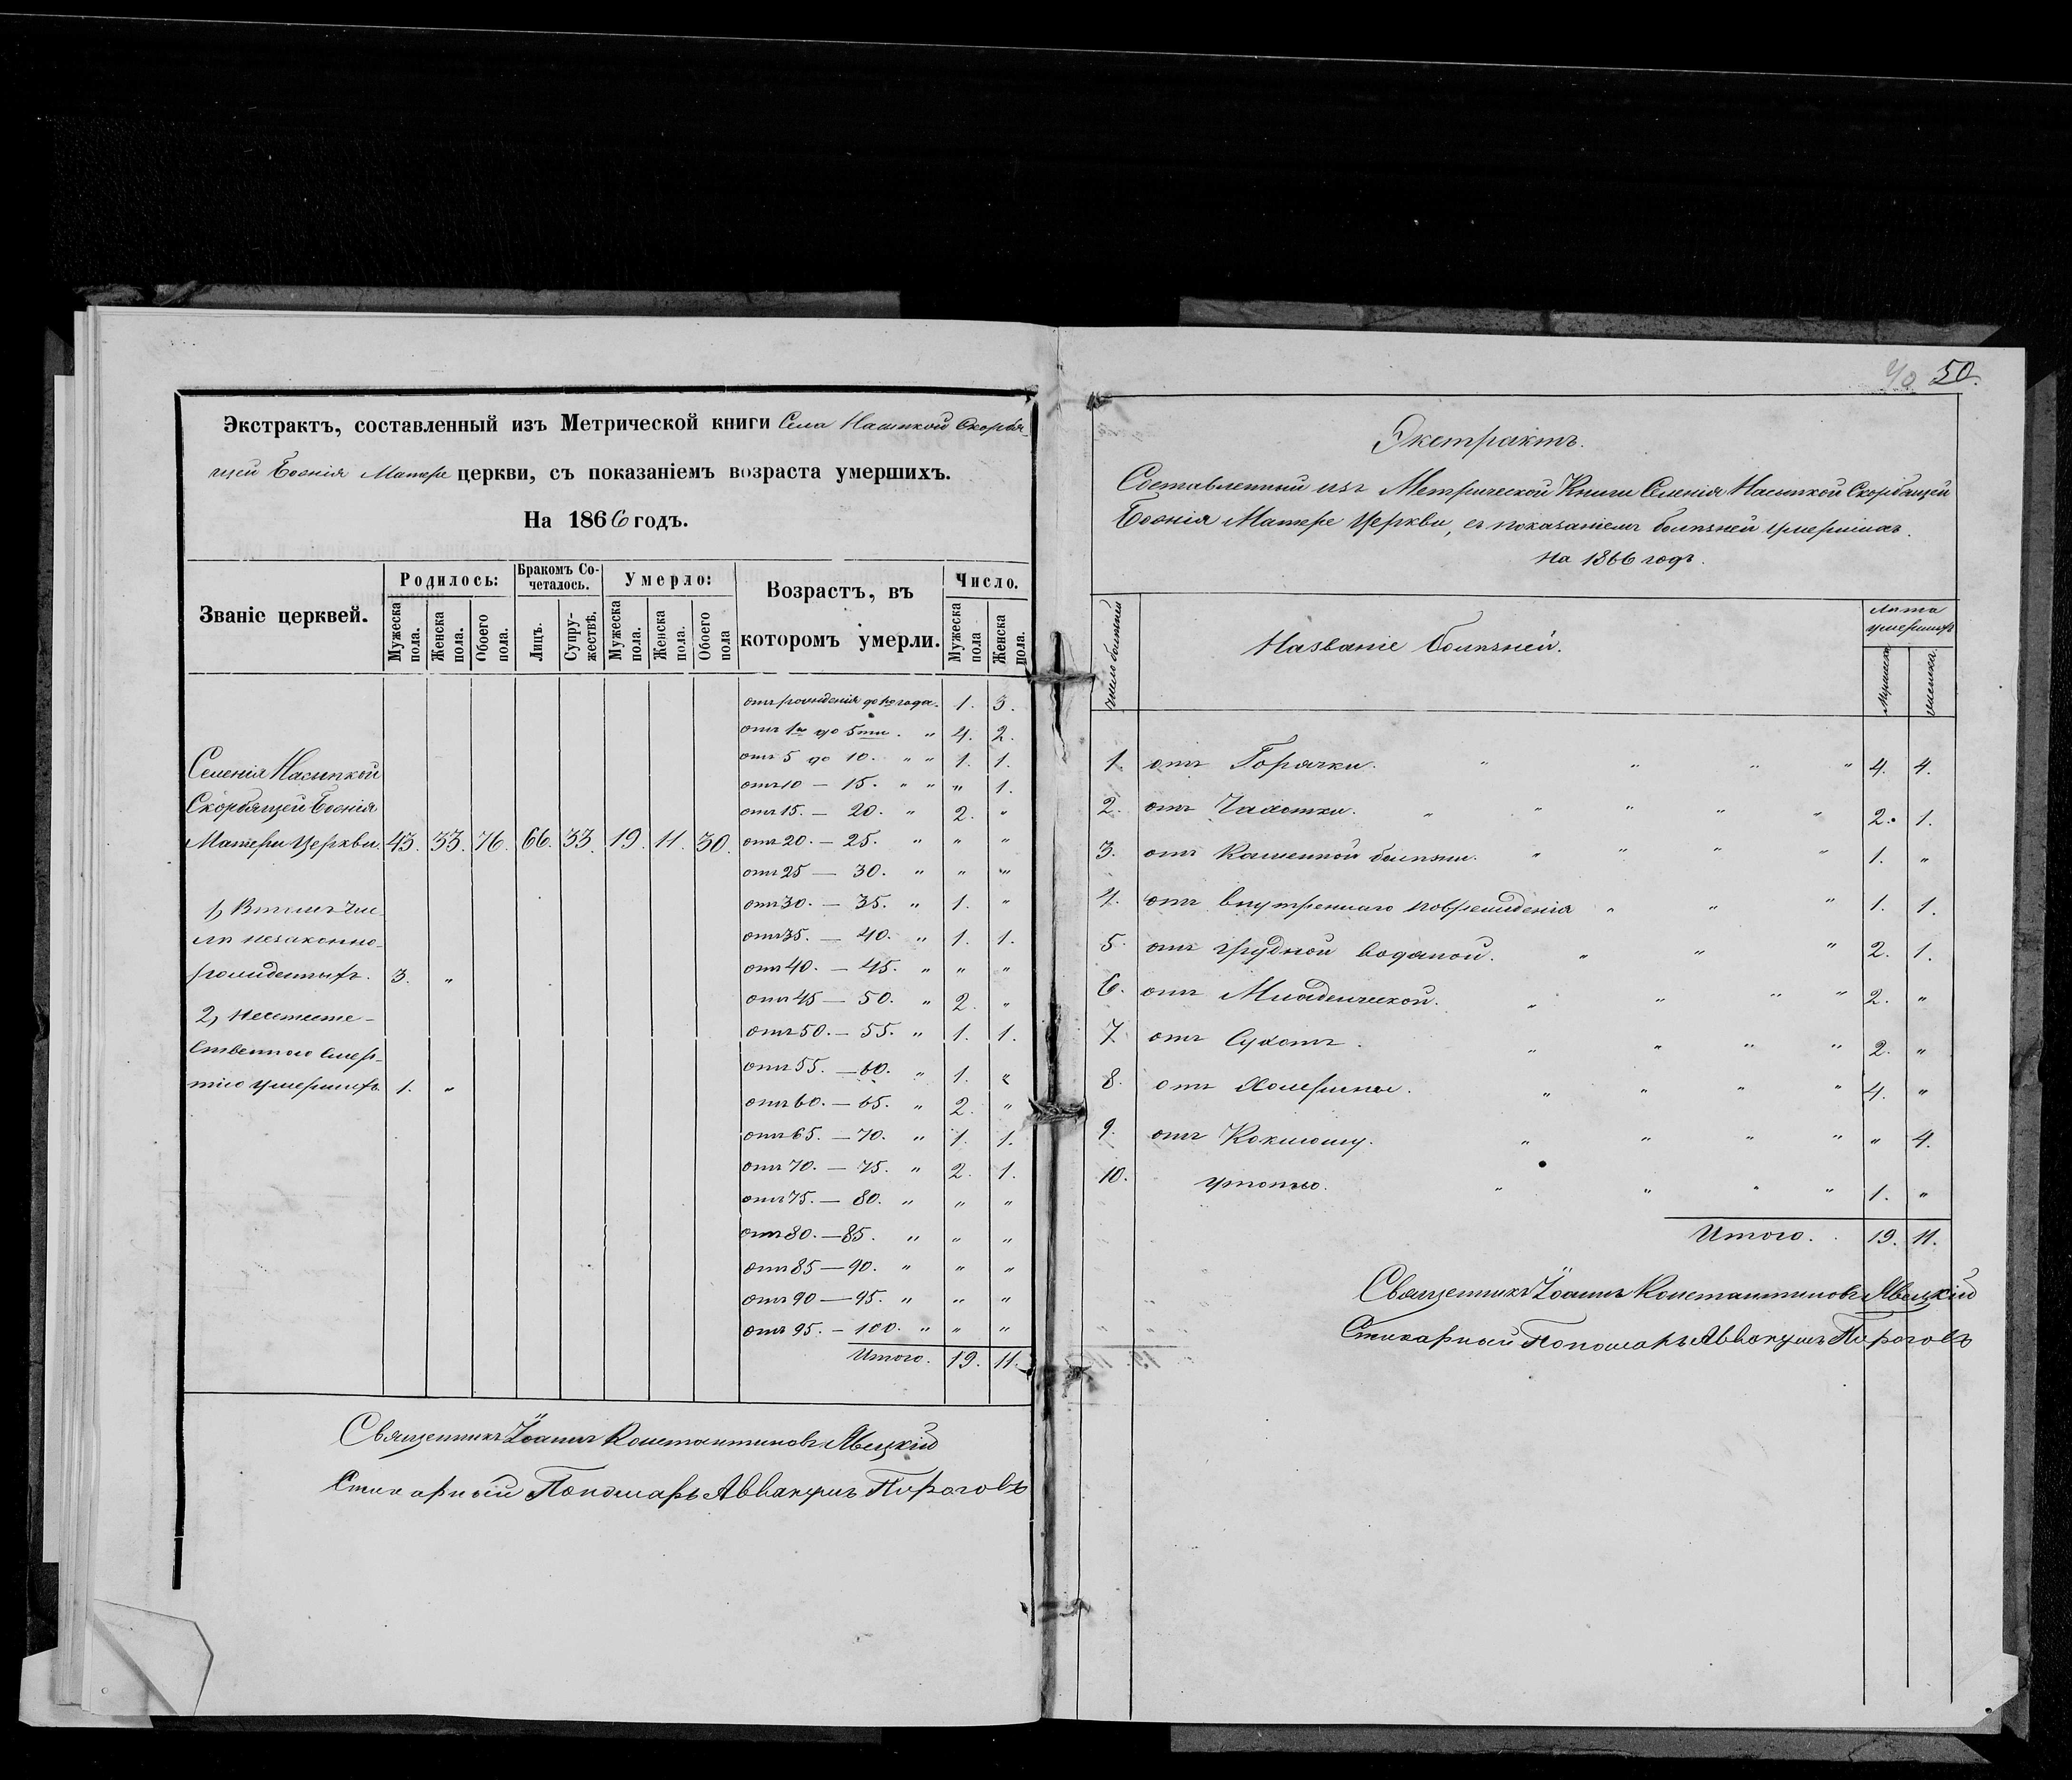 Экстрактъ, составленный изъ Метрической книги Села Насыпкой Скорбя-
щей Божія Матере церкви, съ показаніемъ возраста умершихъ.
На 1866 годъ.
Званіе церквей.
Родилось:
Бракомъ Со-
четалось.
Умерло:
Возрастъ, въ
которомъ умерли.
Число.
Мужеска пола.
Женска пола.
Обоего пола.
Лицъ.
Супру-жествѣ.
Мужеска пола.
Женска пола.
Обоего пола
Мужеска пола
Женска пола.
отъ рожденія до 1го года. 1. 3.
отъ 1го до 5ти. " 4. 2.
отъ 5 до 10. " " 1. 1.
отъ 10 — 15. " " " 1.
отъ 15. — 20. " 2. "
Селенія Насыпкой
Скорбящей Божія
Матери Церкви. 43. 33. 76. 66. 33. 19. 11. 30. отъ 20. — 25. " " "
отъ 25 — 30. " " "
1, Втомъ чис-
отъ 30. — 35. " 1. "
лѣ незаконно-
отъ 35. — 40. " 1. 1.
рожденныхъ. 3. "
отъ 40. — 45. " " "
2, неестесте-
отъ 45 — 50. " 2. "
ственною смер-
отъ 50. — 55. " 1. 1.
тію умершихъ 1. "
отъ 55. — 60. " 1. "
отъ 60. — 65. " 2. "
отъ 65. — 70. " 1. 1.
отъ 70. — 75. " 2. 1.
отъ 75. — 80. " " "
отъ 80. — 85. " " "
отъ 85 — 90. " " "
отъ 90 — 95. " " "
отъ 95. — 100. " " "
Итого. 19. 11.
Священникъ Іоаннъ Константиновъ Явецкій
Стихарный Пономарь Аввакумъ Пироговъ
40 50.
Экстрактъ.
Составленный изъ Метрической Книги Селенія Насыпкой Скорбящей
Божія Матере Церкви, съ показаніемъ болѣзней умершихъ.
На 1866 годъ.
Число болѣзней
Названіе болѣзней.
Лѣта
умершихъ
Мужеска
Женска.
1. отъ Горячки. " " " " 4. 4.
2. отъ Чахотки. " " " " " 2. 1.
3. отъ Каменной болѣзни. " " " " 1. "
4. отъ внутренняго поврежденія " " " 1. 1.
5. отъ грудной водяной. " " " 2. 1.
6. отъ Младенческой. " " " " 2. "
7. отъ Сухотъ. " " " " 2. "
8. отъ Холерины. " " " " 4. "
9. отъ Коклюшу. " " " " " 4.
10. утопло. " " " " 1. "
Итого. 19. 11.
Священникъ Іоаннъ Константиновъ Явецкій
Стихарный Пономарь Аввакумъ Пироговъ